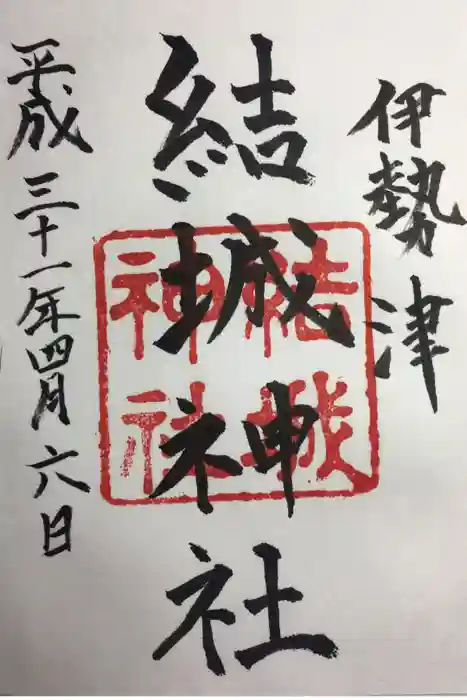 伊勢津
結城神社
結城
神社
平成三十一年四月六日